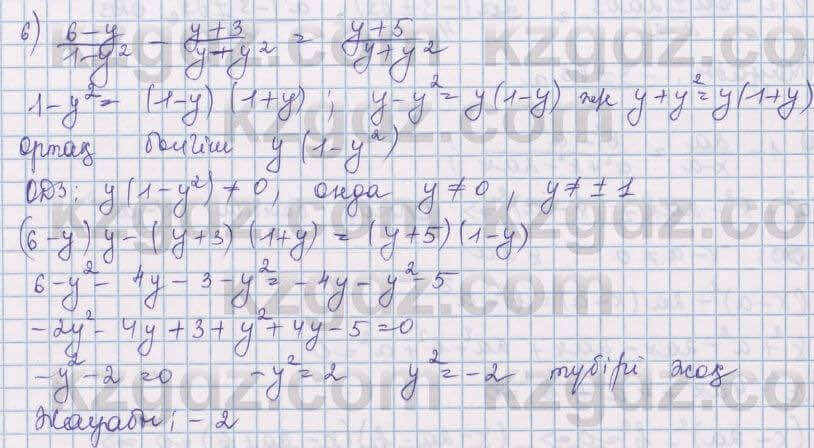 6) (6-y)/(1-y²) - (y+3)/(y+y²) = (y+5)/(y+y²)
1-y² = (1-y)(1+y); y-y² = y(1-y) ж y+y² = y(1+y)
Ортақ бөлгіш y(1-y²)
ОДЗ: y(1-y²) ≠ 0, онда y ≠ 0, y ≠ ± 1
(6-y)y - (y+3)(1+y) = (y+5)(1-y)
6-y² - 4y - 3 - y² = -4y - y² - 5
-2y² - 4y + 3 + y² + 4y - 5 = 0
-y² - 2 = 0 -y² = 2 y² = -2 түбірі жоқ
Жауабы: -2
kzgdz.com